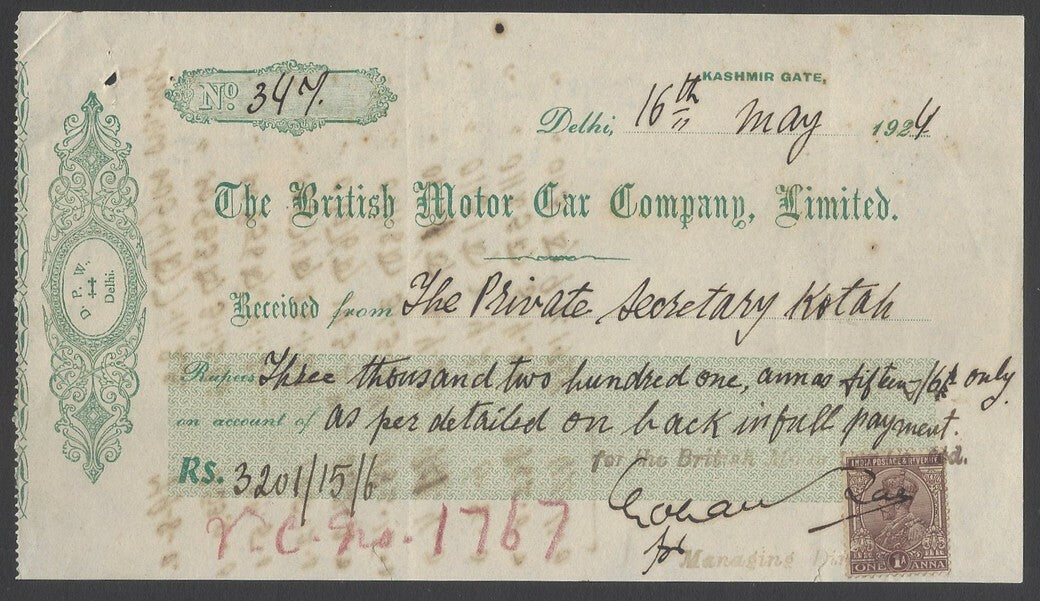 No 347.
KASHMIR GATE,
Delhi, 16th May 1924
The British Motor Car Company, Limited.
D P. W. Delhi.
Received from The Private Secretary Kotah
Rupees Three thousand two hundred one, annas fifteen/6ps only
on account of as per detailed on back in full payment.
for the British Ltd.
Rs. 3201/15/6
V. C. No. 1767
for
Managing
INDIA POSTAGE & REVENUE
ONE 1A ANNA